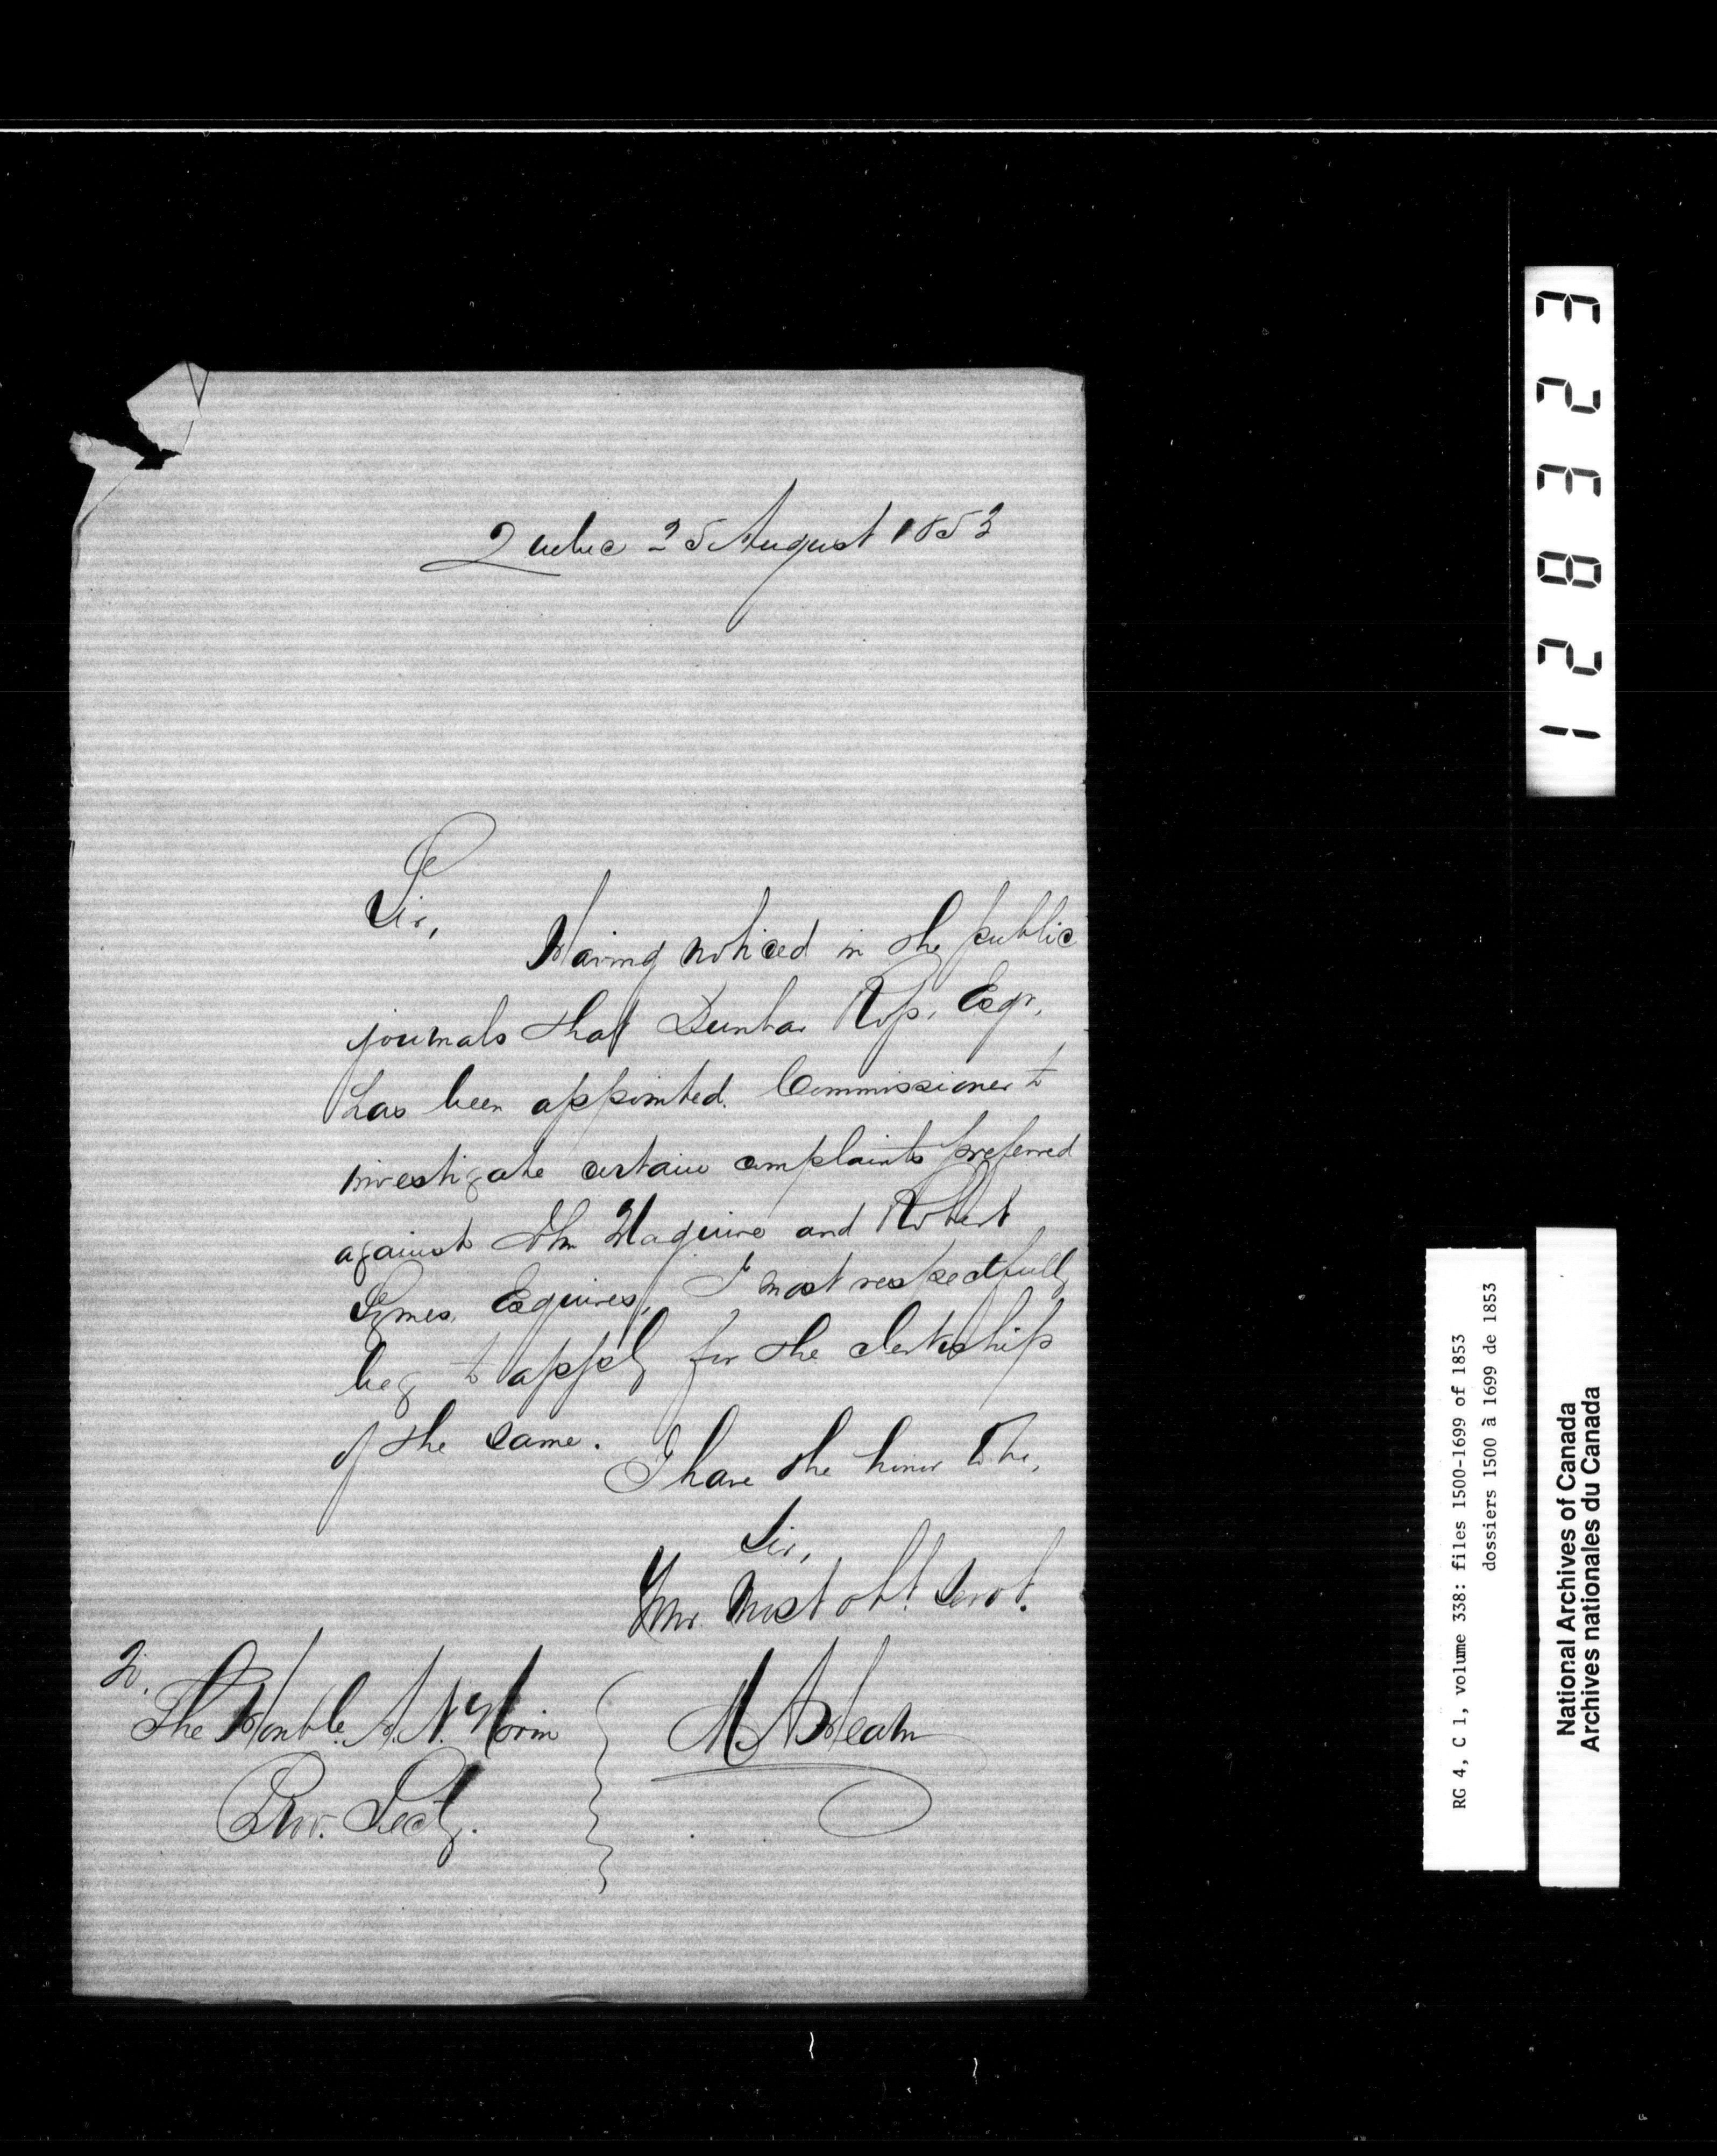 Quebec 25 August 1853
Sir,
Having noticed in the public
journals that Dunbar Ross, Esqr,
has been appointed Commissioner to
investigate certain complaints preferred
against John Maguire and Robert
Symes, Esquires, I most respectfully
beg to apply for the clerkship
of the same.
I have the honor to be,
Sir,
Your Most obt. Servt.
To.
The Honble. A. N. Morin
Prov. Secty.
128323
RG 4, C 1, volume 338: files 1500-1699 of 1853
dossiers 1500 à 1699 de 1853
National Archives of Canada
Archives nationales du Canada